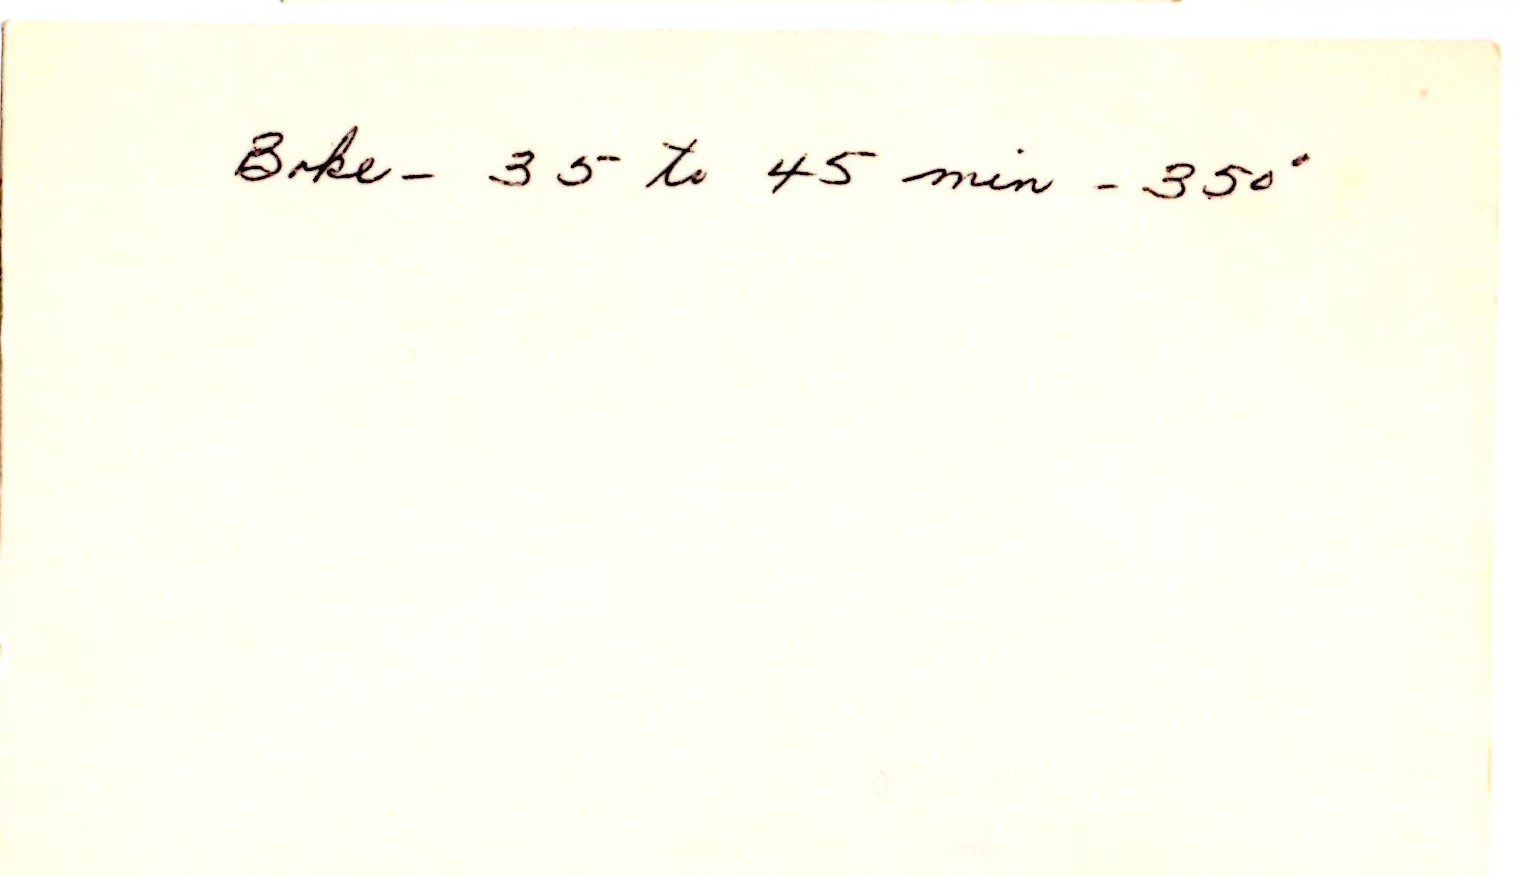 Bake - 35 to 45 min - 350°